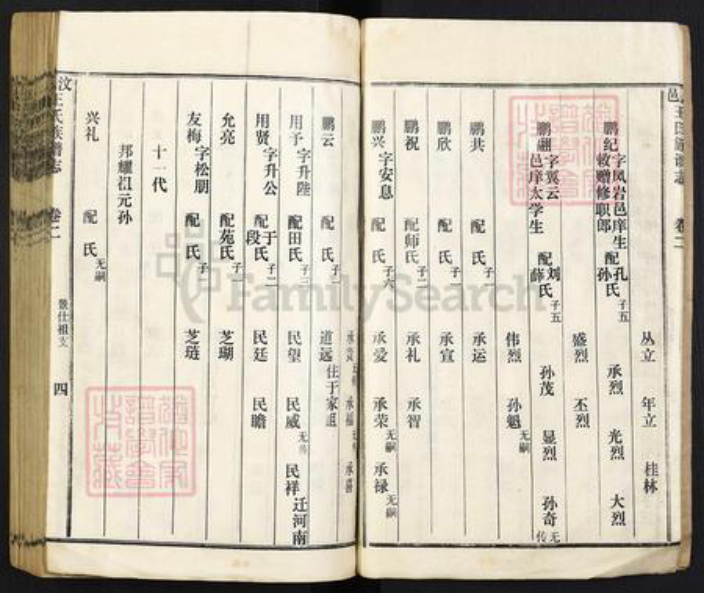 邑王氏族谱志 卷二
丛立 年立 桂林
鹏纪 字凤岩邑庠生 敕赠修职郎 配孔氏 孙 子五 承烈 光烈 大烈
盛烈 丕烈
鹏翮 字翼云 邑庠太学生 配刘氏 薛 子五 孙茂 显烈 孙奇 无传
伟烈 孙魁 无嗣
鹏共 配 氏 子一 承运
鹏欣 配 氏 子一 承宣
鹏祝 配师氏 子二 承礼 承智
鹏兴 字安息 配 氏 子六 承爱 承荣 无嗣 承禄 无嗣
承 承福 承
鹏云 配 氏 子一 道远 住于家
用予 字升陛 配田氏 子三 民望 民威 无传 民祥 迁河南
用贤 字升公 配于氏 段 子二 民廷 民瞻
允亮 配苑氏 子一 芝瑚
友梅 字松朋 配 氏 子一 芝琏
十一代
邦耀祖元孙
兴礼 配 氏 无嗣
汶王氏族谱志 卷二 景仕祖支 四
FamilySearch